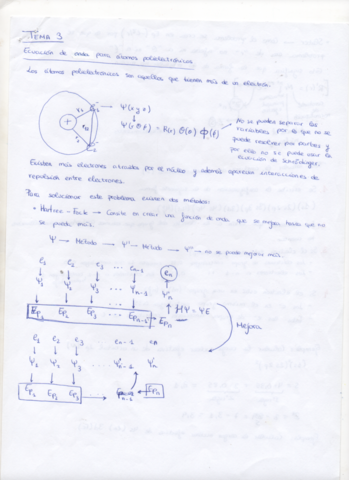 TEMA 3
Ecuación de onda para átomos polielectrónicos
Los átomos polielectrónicos son aquellos que tienen más de un electrón.
Ψ(x y z)
Ψ(r θ ϕ) = R(r) Θ(θ) Φ(ϕ)
No se pueden separar las
variables, por lo que no se
puede resolver por partes y
por ello no se puede usar la
ecuación de Schrödinger.
Existen más electrones atraídos por el núcleo y además aparecen interacciones de
repulsión entre electrones.
Para solucionar este problema existen dos métodos:
Hartree-Fock → Consiste en crear una función de onda que se mejora hasta que no
se pueda más.
Ψ → Método → Ψ' → Método → Ψ'' → no se puede mejorar más.
e1 e2 e3 ... en-1 en
Ψ1 Ψ2 Ψ3 ... Ψn-1 Ψn
Ep1 Ep2 Ep3 ... Epn-1 → Epn
HΨ = ΨE
Mejora
e1 e2 e3 en-1 en
Ψ1 Ψ2 Ψ3 ... Ψn-1 Ψn
Ep1 Ep2 Ep3 ... Epn